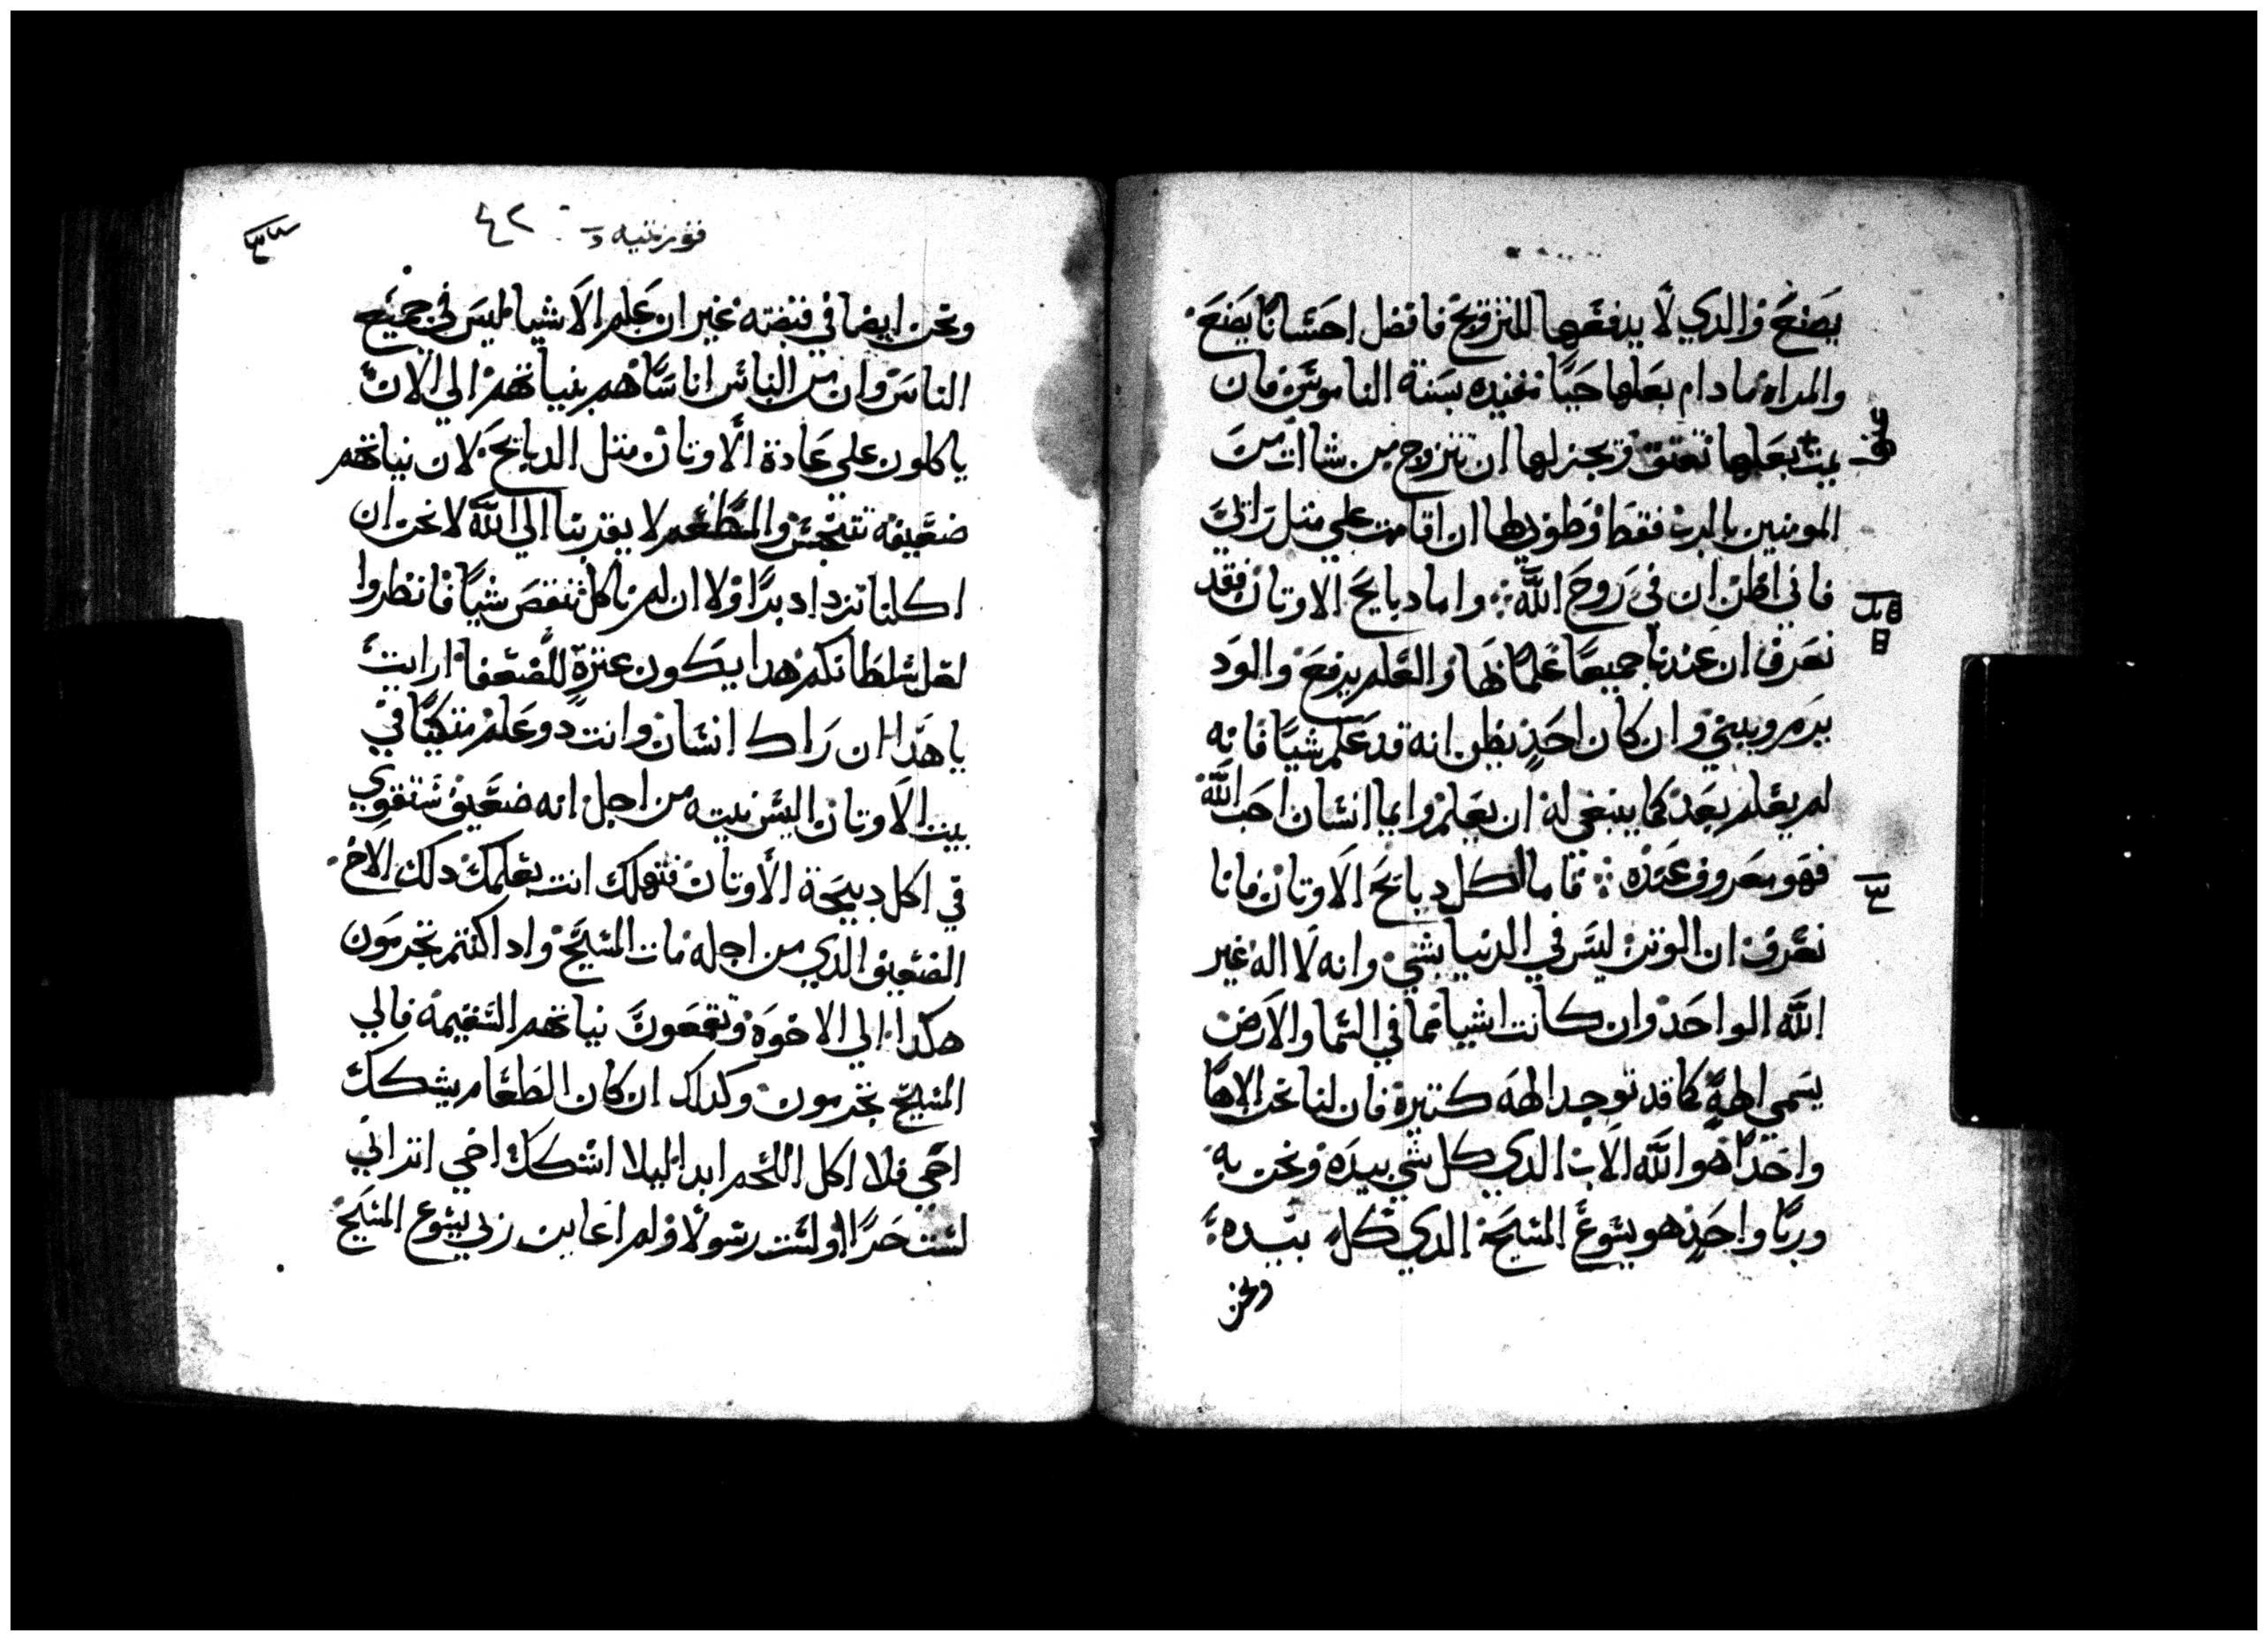 يصنع والذي لا يدفعها للتزويج فافضل احسانا يصنع
والمراه مادام بعلها حيا مقيده بسنة الناموس فان
يمت بعلها تعتق ويجز لها ان تتزوج من شاات من
المومنين بالرب فقط وطوبي لها ان اقامت علي متل رااي
فاني اظن ان في روح الله واما دبايح الاوتان فقد
نعرف ان عندنا جميعا علما بها والعلم يرفع والود
يرم ويبني وان كان احد يظن انه قد علم شيا فانه
لم يعلم بعد كما ينبغي له ان يعلم وايما انسان احب الله
فهو معروف عنده فاما اكل دبايح الاوتان فانا
نعرف ان الوتن ليس في الدنيا بشي وانه لا اله غير
الله الواحد وان كانت اشيا مما في السما والارض
يسمي الهة كما قد توجد الهه كتيرة فان لنا نحن الاها
واحدا هو الله الاب الدي كل شي بيده ونحن به
وربا واحد هو يسوع المسيح الدي كل بيده
ونحن
فورنتيه د ٤٢
ونحن ايضا في قبضته غير ان علم الاشيا ليس في جميع
الناس وان من الناس اناسا هم بنياتهم الي الان
ياكلون علي عادة الاوتان متل الدبايح لان نياتهم
ضعيفه تتنجس والمطعم لا يقربنا الي الله لا نحن ان
اكلنا نزداد برا ولا ان لم ناكل ننقص شيا فانظروا
لعل سلطانكم هدا يكون عترة للضعفا ارايت
يا هدا ان راك انسان وانت دو علم متكيا في
بيت الاوتان اليس نيته من اجل انه ضعيف ستقوي
في اكل دبيحة الاوتان فتهلك انت بعلمك دلك الاخ
الضعيف الدي من اجله مات المسيح وادا كنتم تجرمون
هكدا الي الاخوه وتقمعون نياتهم السقيمه فالي
المسيح تجرمون وكداك ان كان الطعام يشكك
اخي فلا اكل اللحم ابدا ليلا اشكك اخي اتراني
لست حرا اولست رسولا ولم اعاين ربي يسوع المسيح